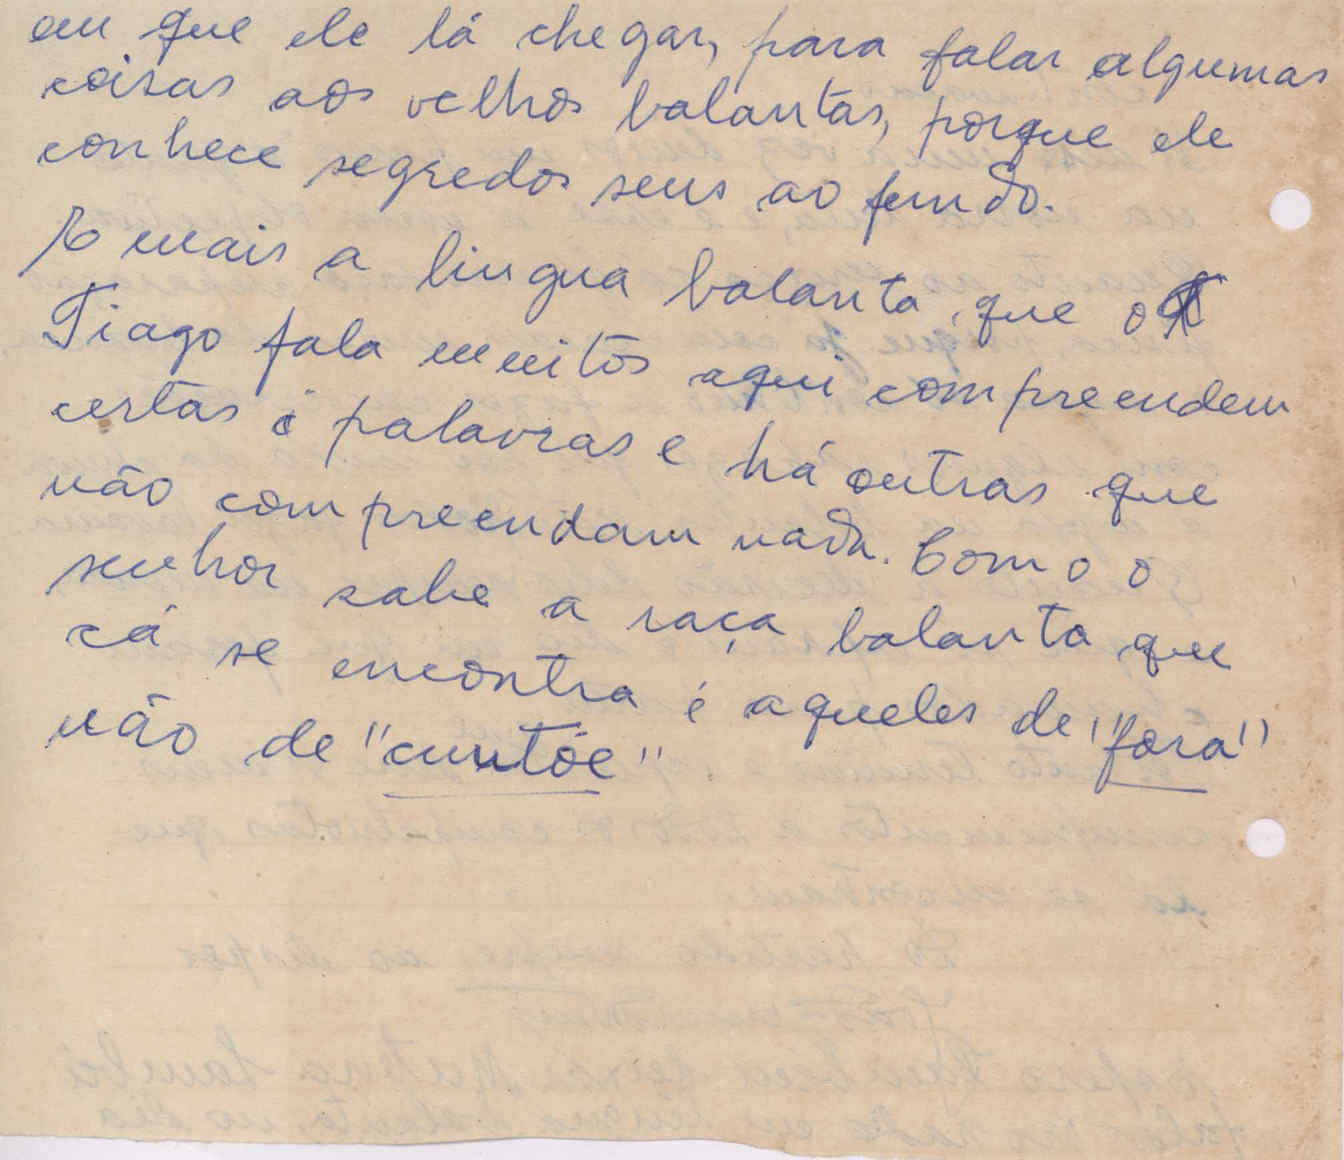 em que ele lá chegar, para falar algumas
coisas aos velhos balantas, porque ele
conhece segredos seus ao fundo.
E mais a lingua balanta, que o
Tiago fala muitos aqui compreendem
certas é palavras e há outras que
não compreendam nada. Como o
senhor sabe a raça balanta que
cá se encontra é aqueles de "fora"
não de "cuntóe"